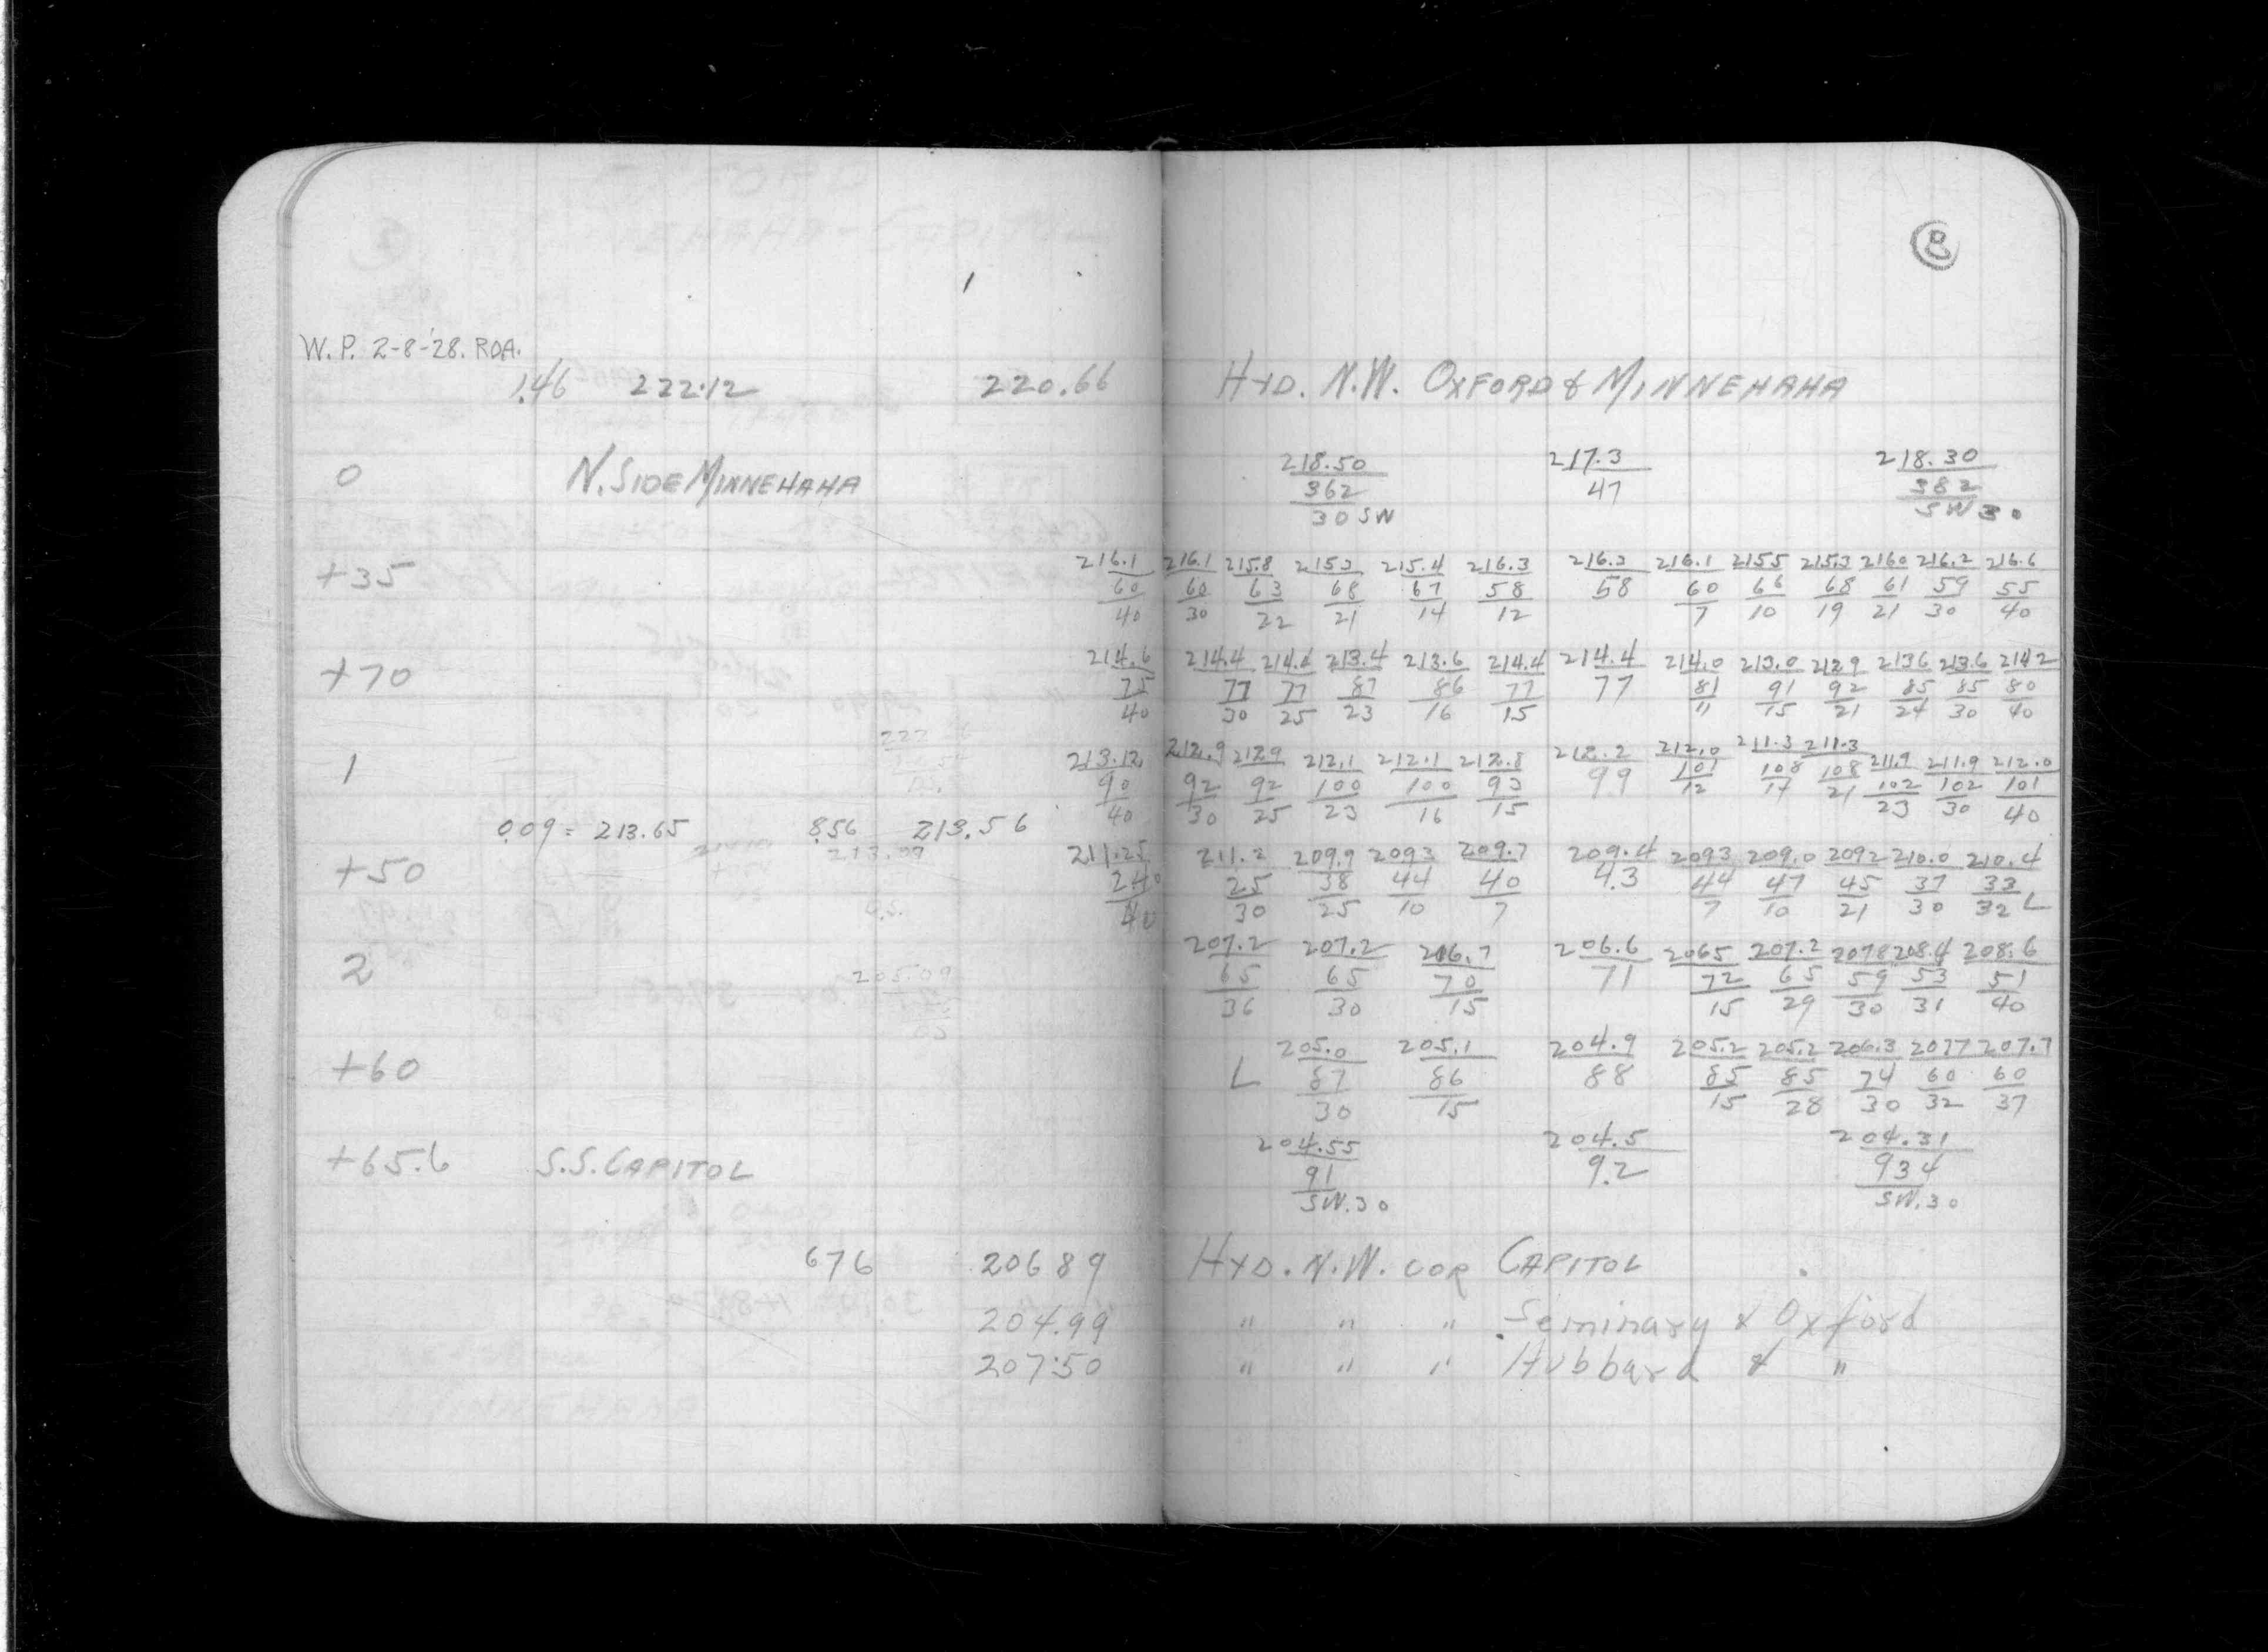 8
W.P. 2-8-'28. ROA.
1.46 222.12 220.66 HYD. N.W. OXFORD & MINNEHAHA
0 N. SIDE MINNEHAHA 218.50 217.3 218.30
362 47 382
30 SW SW 30
+35 216.1 216.1 215.8 215.3 215.4 216.3 216.3 216.1 2155 215.3 2160 216.2 216.6
60 60 63 68 67 58 58 60 66 68 61 59 55
40 30 22 21 14 12 7 10 19 21 30 40
+70 214.6 214.4 214.4 213.4 213.6 214.4 214.4 214.0 213.0 2129 2136 213.6 2142
75 77 77 87 86 77 77 81 91 92 85 85 80
40 30 25 23 16 15 11 15 21 24 30 40
1 213.12 212.9 2129 212.1 212.1 212.8 212.2 212.0 211.3 211.3 211.9 211.9 212.0
90 92 92 100 100 93 99 101 108 108 102 102 101
40 30 25 23 16 15 12 17 21 23 30 40
0.09 = 213.65 8.56 213.56
+50 211.25 211.2 209.9 2093 209.7 209.4 2093 209.0 2092 210.0 210.4
240 25 38 44 40 4.3 44 47 45 37 33
40 30 25 10 7 7 10 21 30 32 L
2 207.2 207.2 206.7 206.6 2065 207.2 2078 208.4 208.6
65 65 70 71 72 65 59 53 51
36 30 15 15 29 30 31 40
+60 205.0 205.1 204.9 205.2 205.2 206.3 2077 207.7
L 87 86 88 85 85 74 60 60
30 15 15 28 30 32 37
+65.6 S.S. CAPITOL 204.55 204.5 204.31
91 9.2 934
SW. 30 SW. 30
676 206 89 HYD. N.W. COR CAPITOL
204.99 " " " Seminary & Oxford
207.50 " " " Hubbard & "